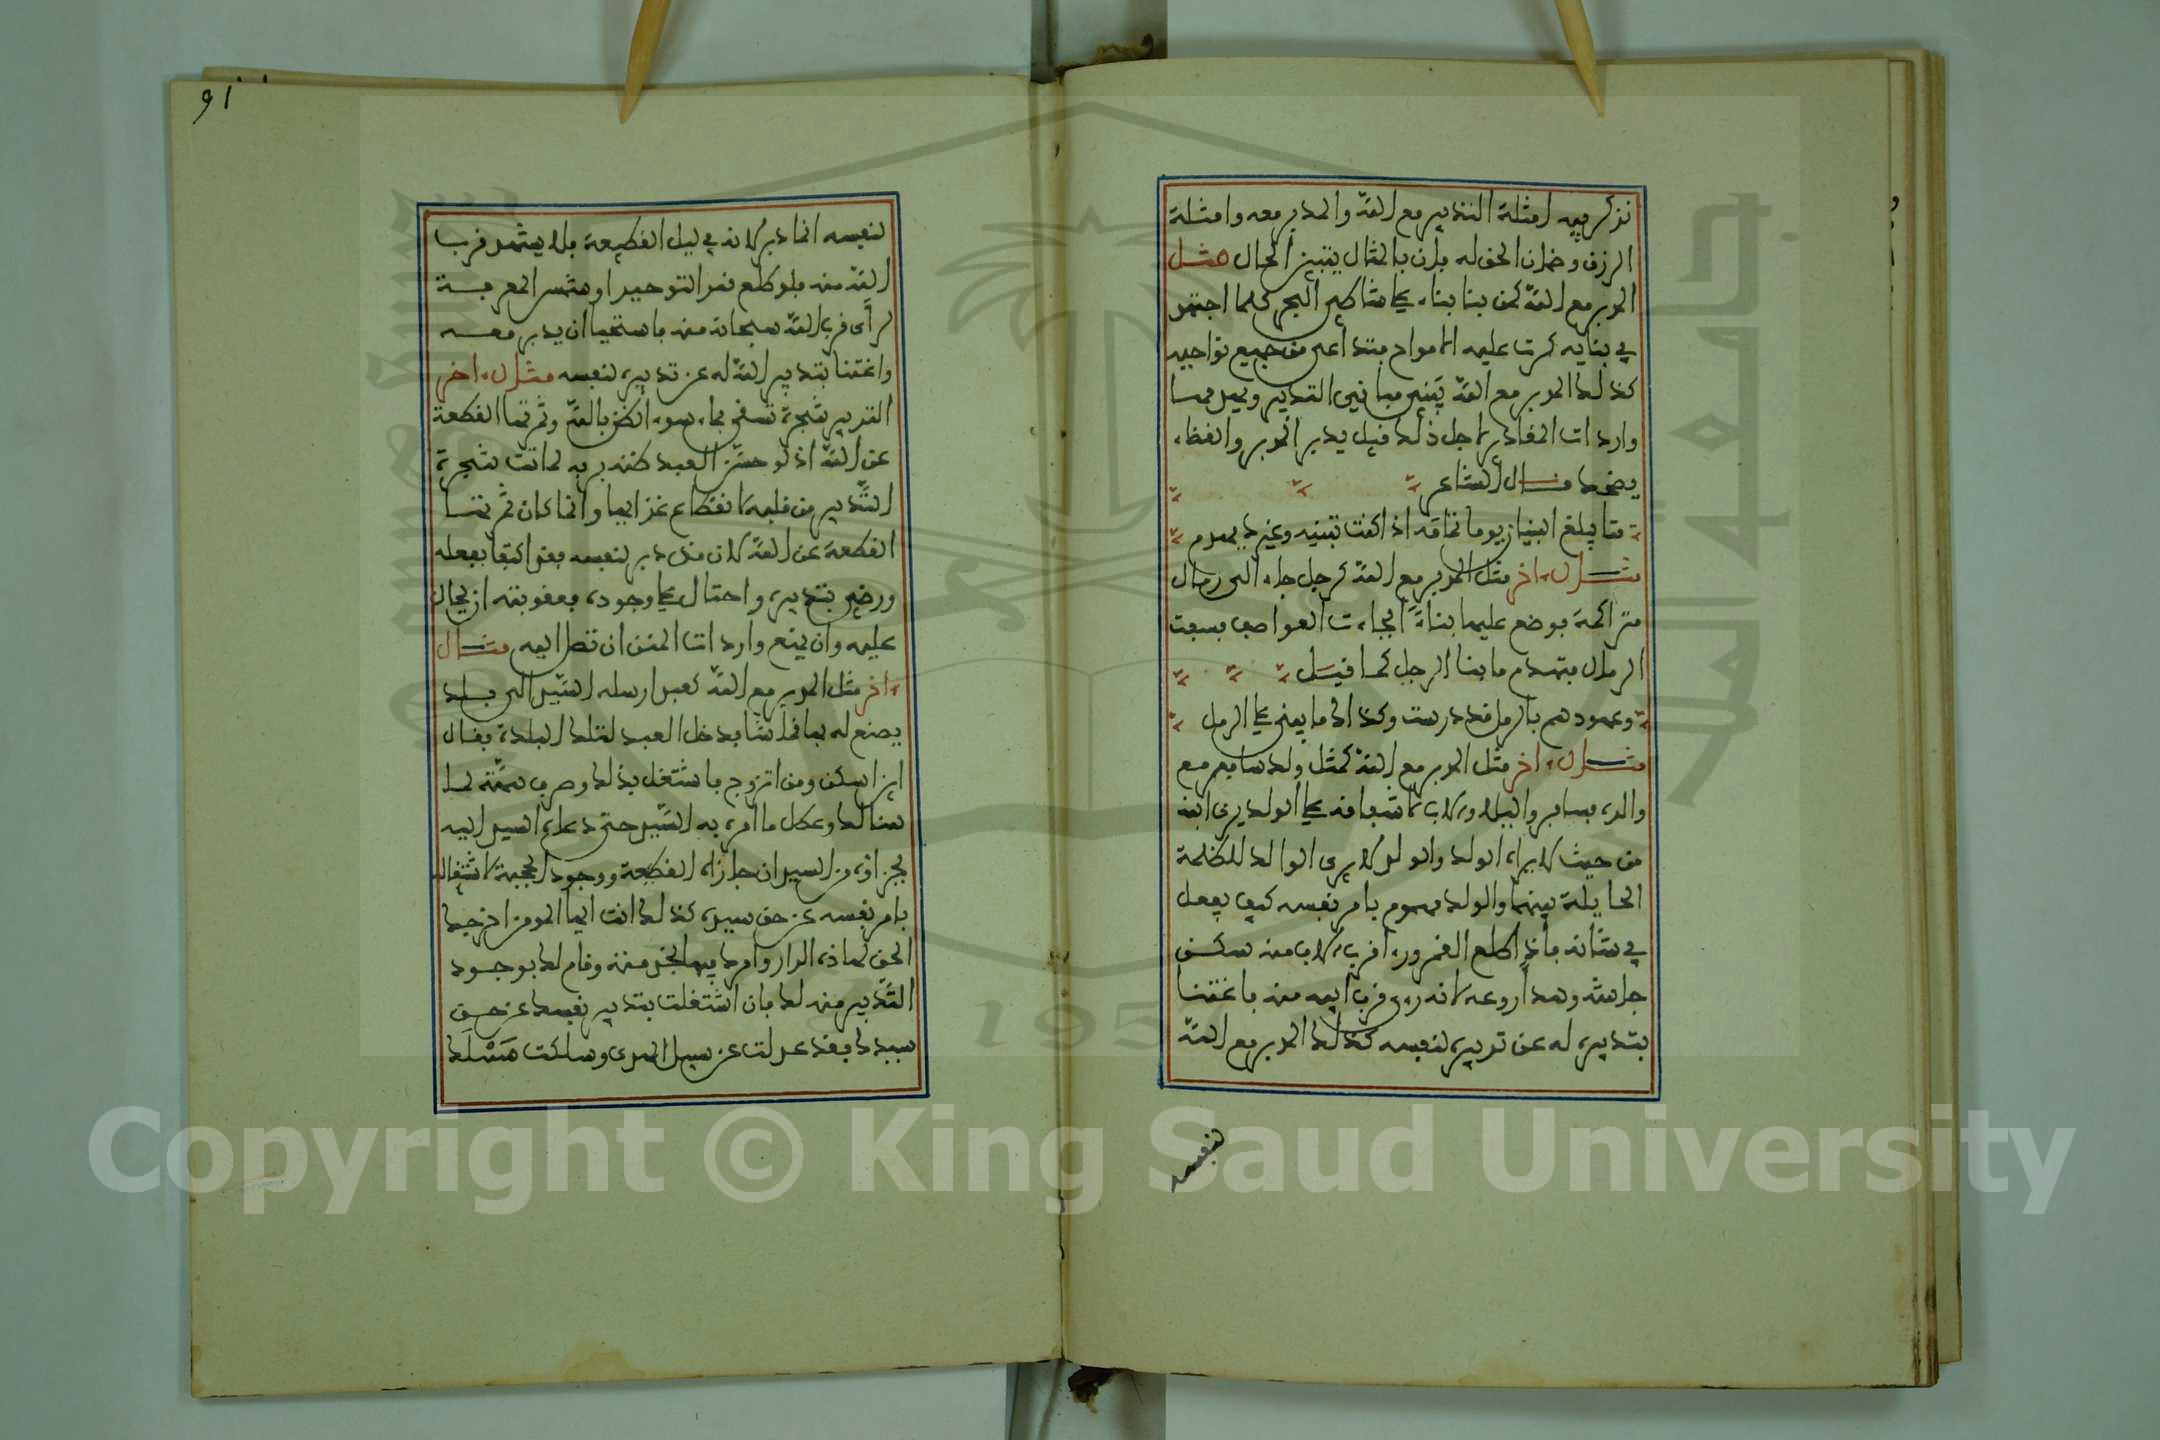 نذكر فيه أمثلة التدبير مع الله والمدبر معه وامثلة
الرزق وضمان الحق له فإن بالمثال يتبين الحال مثل
المدبر مع الله كمن بنا بناء على شاطئ البحر كلما اجتهد
في بنايه كرت عليه الامواج فتداعى من جميع نواحيه
كذلك المدبر مع الله يبني مباني التدبير وتهدمها
واردات المقادير لاجل ذلك قيل يدبر المدبر والقضاء
يضحك قال الشاعر
متا يبلغ البنيان يوما تمامه اذا كنت تبنيه وغيرك يهدم
مثال اخر مثل المدبر مع الله كرجل جاء الى رمال
متراكمة فوضع عليها بناءً فجاءت العواصف فسفت
الرمال فتهدم ما بنا الرجل كما قيل
وعهودهم بالرمل قد درست وكذاك ما يبنى على الرمل
مثال اخر مثل المدبر مع الله كمثل ولد سافر مع
والده فسافر والليلا والاب لاشفاقه على الولد يرى ابنه
من حيث لا يراه الولد والولد لا يرى الوالد للظلمة
الحايلة بينهما والولد مهموم بامر نفسه كيف يفعل
في شانه فإذا طلع القمر وراء قرب الاب منه سكن
جاشه وهدأ روعه لانه رءى قرب ابيه منه فاغتنا
بتدبيره له عن تدبيره لنفسه كذلك المدبر مع الله
لنفسه
91
لنفسه انما دبر لانه في ليل القطيعة فلا يشهد قرب
الله منه فلو طلع قمر التوحيد او شمس المعرفة
لرأى قرب الله سبحانه منه فاستحيا ان يدبر معه
واغتنا بتدبير الله له عن تدبيره لنفسه مثال اخر
التدبير شجرة تسقى بماء سوء الظن بالله وثمرتها القطعة
عن الله اذ لو حسّن العبد ظنه بربه لماتت شجرة
التّدبير من قلبه لانقطاع غذايها وانما كان ثمرتها
القطعة عن الله لان من دبر لنفسه فقد اكتفا بعقله
ورضي بتدبيره واحتال على وجوده فعقوبته ان يحال
عليه وان يمنع واردات المنن ان تصل اليه مثال
اخر مثل المدبر مع الله كعبد ارسله السّيد الى بلد
يصنع له بها قماشا فدخل العبد لتلك البلدة فقال
اين اسكن ومن اتزوج فاشتغل بذلك وصرف همّته لما
هنالك وعطل ما امره به السّيد حتى دعاه السيد اليه
فجزاؤه من السيد ان جازاه القطعة ووجود الحجبة لاشتغاله
بامر نفسه عن حق سيده كذلك انت ايها المومن اخرجك
الحق لهاذه الدار وامرك فيها بخدمته وقام لك بوجود
التّدبير منه لك فان اشتغلت بتدبير نفسك عن حق
سيدك فقد عدلت عن سبيل الهدى وسلكت مَسْلَك
Copyright © King Saud University
1957